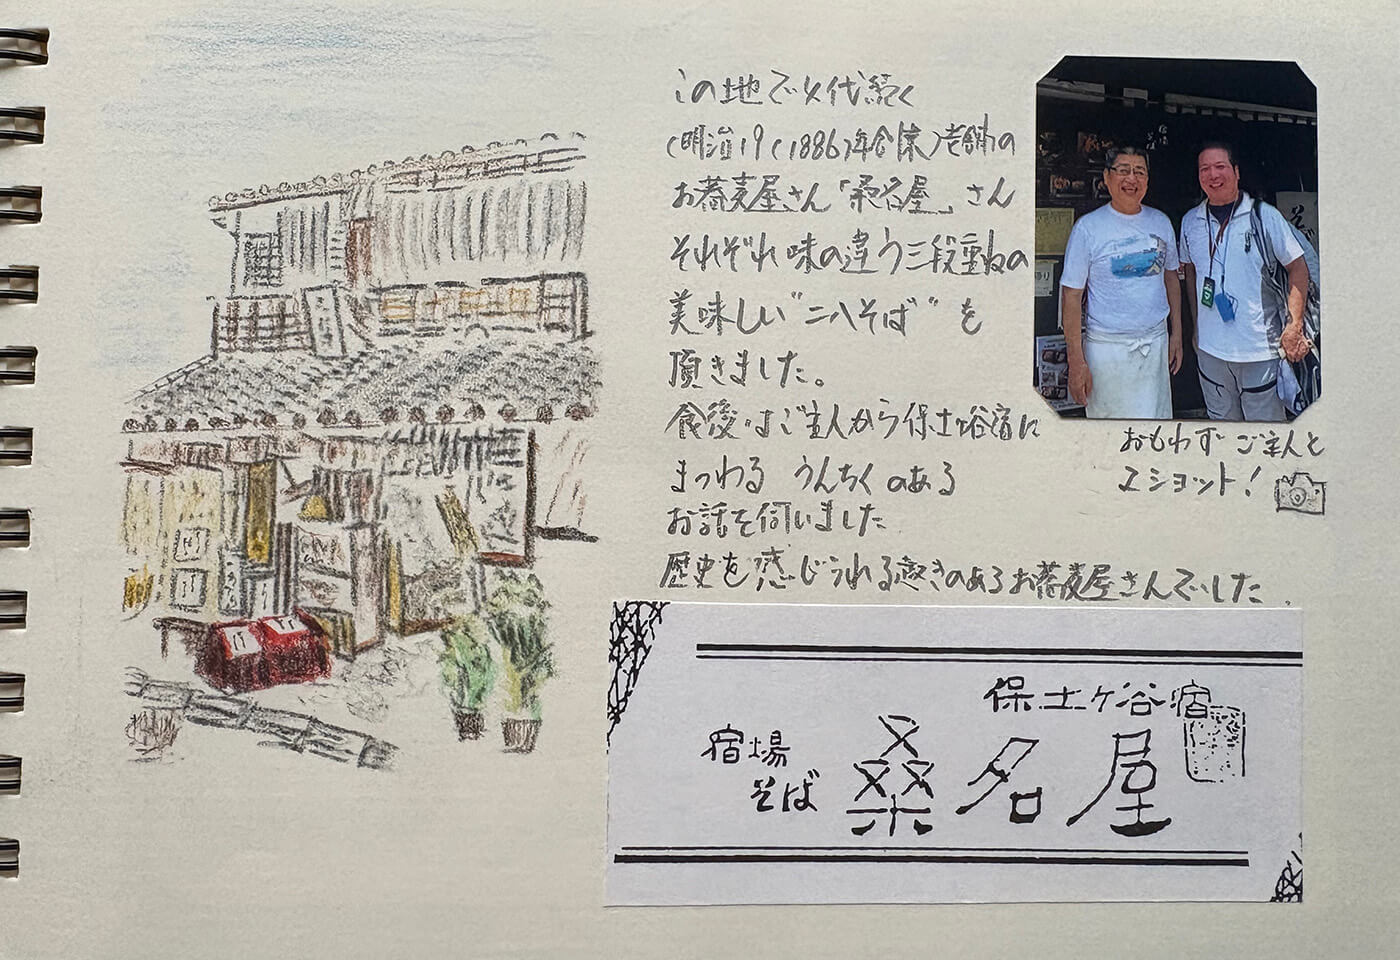 この地で4代続く
(明治19(1886)年創業)老舗の
お蕎麦屋さん「桑名屋」さん
それぞれ味の違う三段重ねの
美味しい"二八そば"を
頂きました。
食後はご主人から保土ヶ谷宿に
まつわる うんちくのある
お話を伺いました
歴史を感じられる趣きのあるお蕎麦屋さんでした。
おもわずご主人と
2ショット!
保土ヶ谷宿
宿場
そば
桑名屋